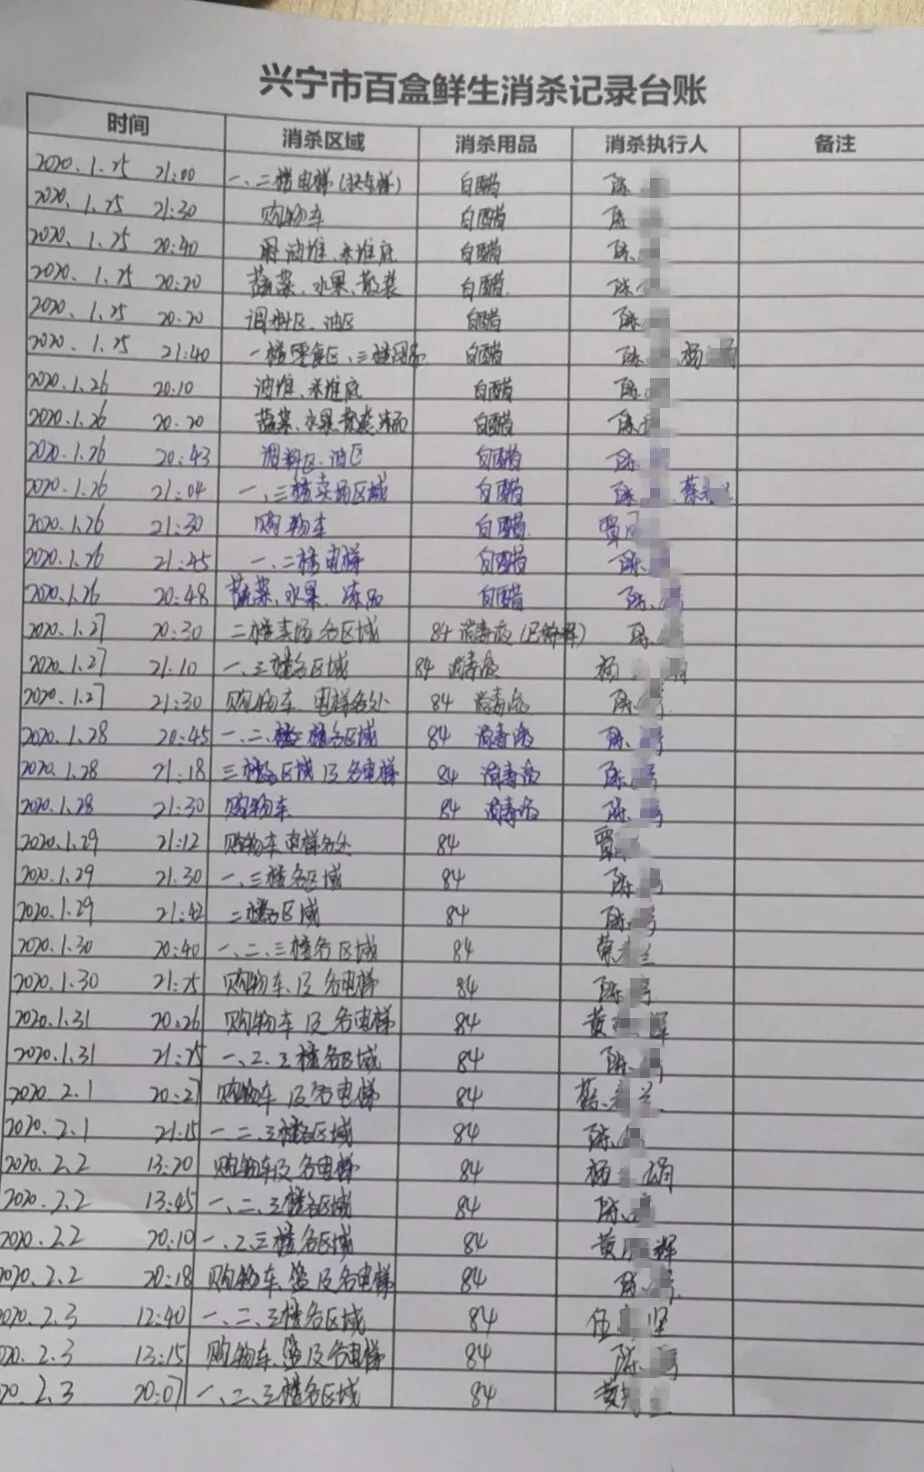 兴宁市百盒鲜生消杀记录台账
时间 消杀区域 消杀用品 消杀执行人 备注
2020.1.25 21:00 一、二楼电梯 白醋 陈
2020.1.25 21:30 购物车 白醋 陈
2020.1.25 20:40 油堆、米堆底 白醋 陈
2020.1.25 20:20 蔬菜、水果、散装 白醋 陈
2020.1.25 20:20 调料区、油区 白醋 陈
2020.1.25 21:40 一楼零食区、三楼 白醋 陈 杨
2020.1.26 20:10 油堆、米堆底 白醋 陈
2020.1.26 20:20 蔬菜、水果、散装、 白醋 陈
2020.1.26 20:43 调料区、油区 白醋 陈
2020.1.26 21:04 一、三楼卖场区域 白醋 陈 蔡
2020.1.26 21:30 购物车 白醋 贾
2020.1.26 21:45 一、二楼电梯 白醋 陈
2020.1.26 20:48 蔬菜、水果、冻品 白醋 陈
2020.1.27 20:30 二楼卖场各区域 84消毒液(已稀释) 陈
2020.1.27 21:10 一、三楼各区域 84消毒液 杨
2020.1.27 21:30 购物车、电梯各处 84 消毒液 陈
2020.1.28 20:45 一、二楼各区域 84 消毒液 陈
2020.1.28 21:18 三楼各区域及各电梯 84 消毒液 陈
2020.1.28 21:30 购物车 84 消毒液 陈
2020.1.29 21:12 购物车电梯各处 84 贾
2020.1.29 21:30 一、三楼各区域 84 陈
2020.1.29 21:42 二楼各区域 84 陈
2020.1.30 20:40 一、二、三楼各区域 84 蔡 兰
2020.1.30 21:25 购物车、及各电梯 84 陈
2020.1.31 20:26 购物车及各电梯 84 黄 辉
2020.1.31 21:25 一、二、三楼各区域 84 陈
2020.2.1 20:27 购物车及各电梯 84 蔡 兰
2020.2.1 21:15 一、二、三楼各区域 84 陈
2020.2.2 13:20 购物车及各电梯 84 杨 娟
2020.2.2 13:45 一、二、三楼各区域 84 陈
2020.2.2 20:10 一、二、三楼各区域 84 黄 辉
2020.2.2 20:18 购物车、篮及各电梯 84 陈
020.2.3 12:40 一、二、三楼各区域 84 伍 坚
020.2.3 13:15 购物车、篮及各电梯 84 陈
20.2.3 20:07 一、二、三楼各区域 84 黄